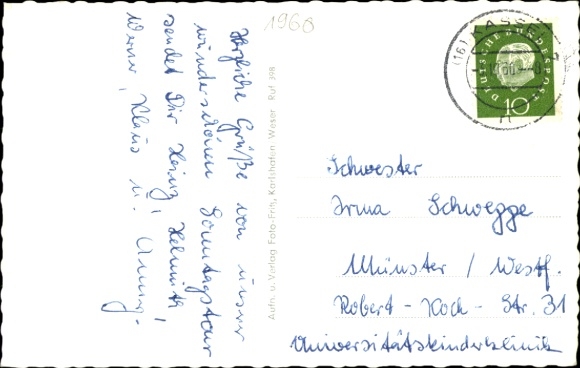 1960
Herzliche Grüße von unserer
wunderschönen Sonntagstour
sendet Dir Heinz, Helmut,
Werner, Klaus u.
Aufn. u. Verlag Foto-Fritz, Karlshafen Weser Ruf 398
(16) KASSEL 2
DEUTSCHE BUNDESPOST
10
Schwester
Irma Schwegge
Münster / Westf.
Robert-Koch-Str. 31
Universitätskinderklinik